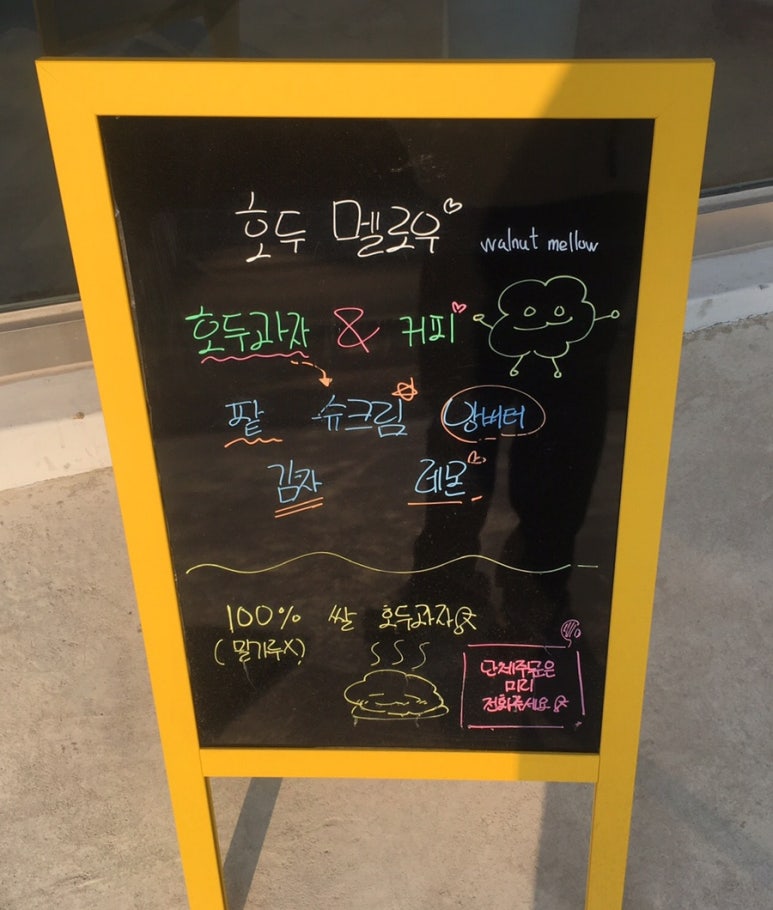 호두 멜로우
walnut mellow
호두과자 & 커피
팥 슈크림 앙버터
감자 레몬
100% 쌀 호두과자
(밀가루X)
단체주문은
미리
전화주세요